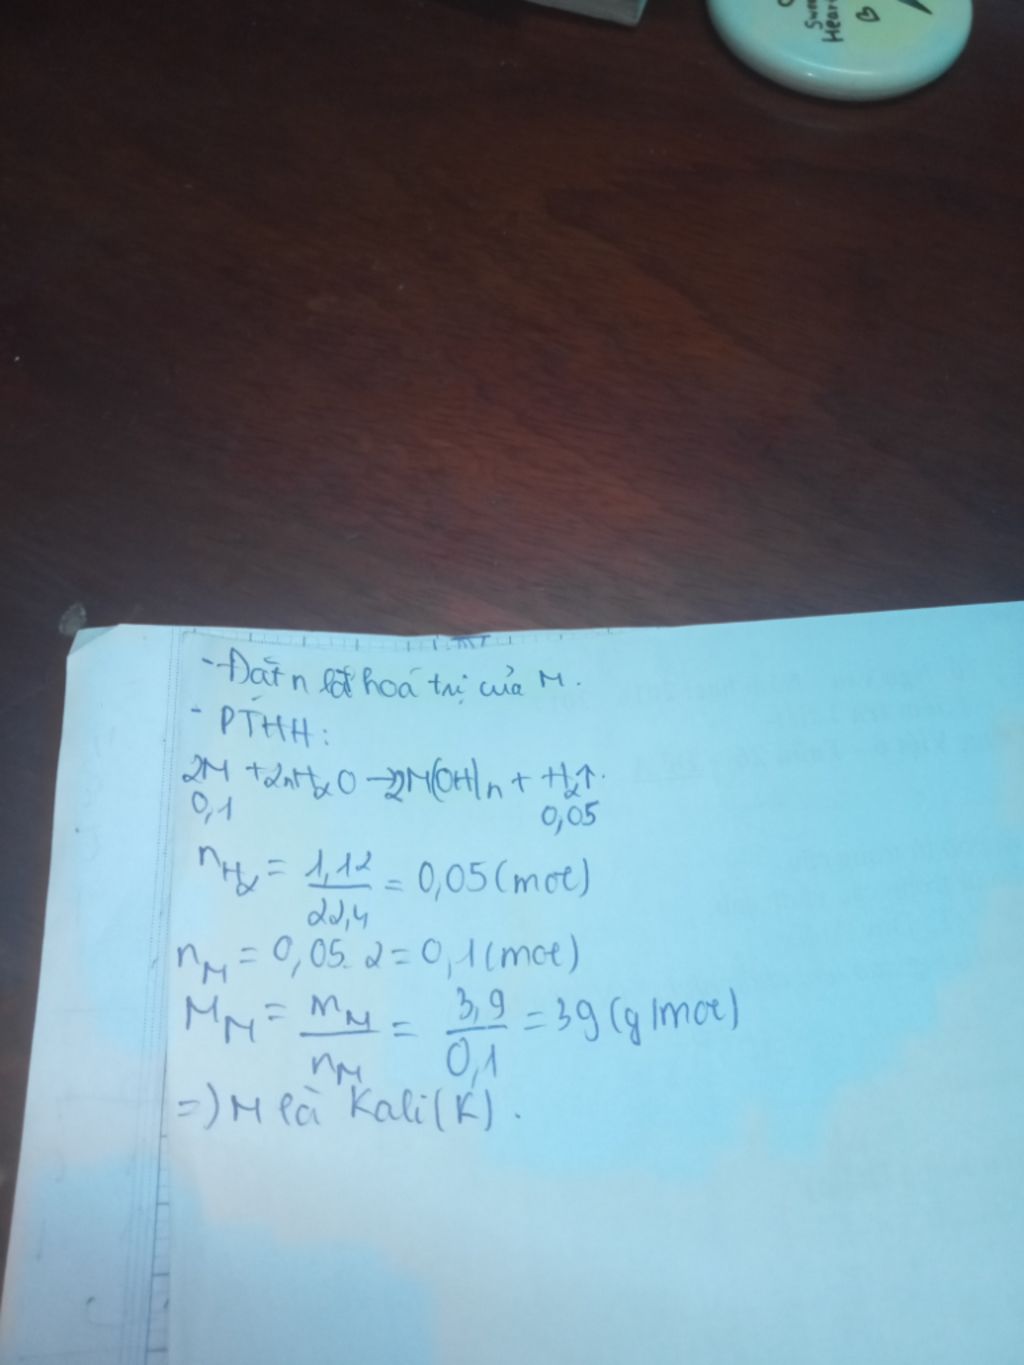 Swee
Hear
- Đặt n là hoá trị của M.
- PTHH:
2M + 2nH₂O → 2M(OH)n + H₂↑.
0,1 0,05
nH₂ = 1,12/22,4 = 0,05 (mol)
nM = 0,05. 2 = 0,1 (mol)
MM = mM/nM = 3,9/0,1 = 39 (g/mol)
=) M là Kali (K).